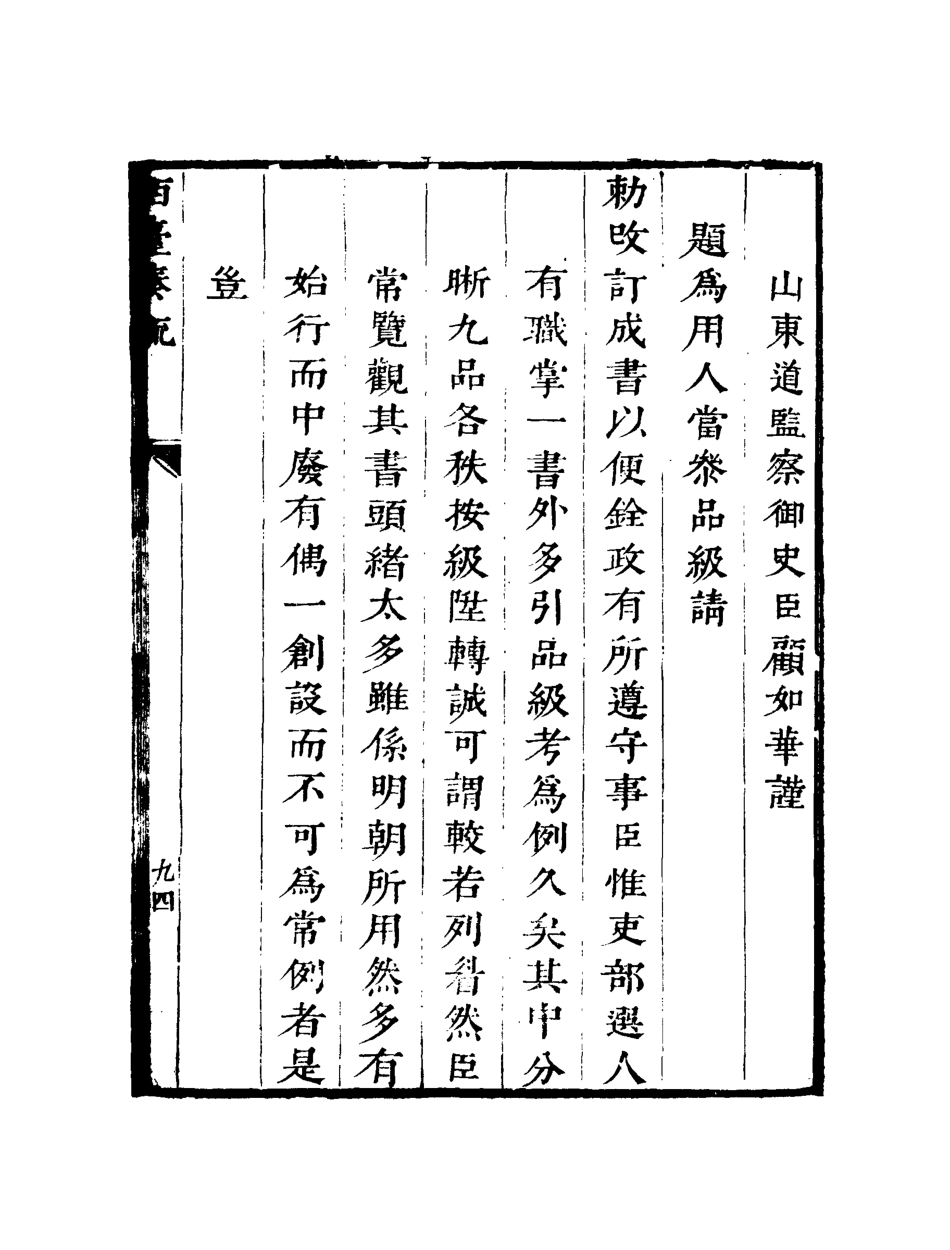 山東道監察御史臣顧如華謹
題爲用人當叅品級請
勅改訂成書以便銓政有所遵守事臣惟吏部選人
有職掌一書外多引品級考爲例久矣其中分
晰九品各秩按級陞轉誠可謂較若列眉然臣
常覽觀其書頭緒太多雖係明朝所用然多有
始行而中廢有偶一創設而不可爲常例者是
豈
西臺奏疏
九四